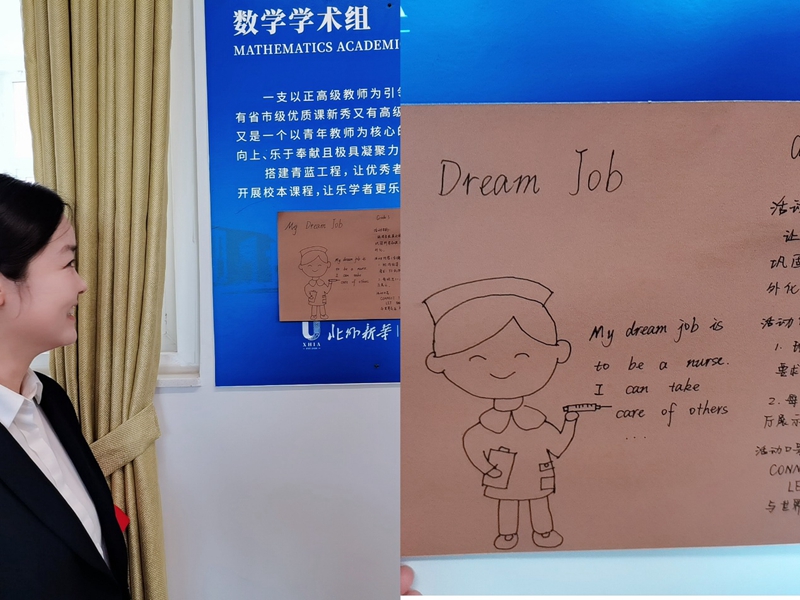 数学学术组
MATHEMATICS ACADEMI
一支以正高级教师为引领
有省市级优质课新秀又有高级
又是一个以青年教师为核心的
向上、乐于奉献且极具凝聚力
搭建青蓝工程，让优秀者
开展校本课程，让乐学者更乐
My Dream Job
My dream job is
to be a nurse
I can take
care of others
XHIA
北外新华
Dream Job
My dream job is
to be a nurse.
I can take
care of others
...
活动
让
巩固
外化
活动
1.
要求
2. 每
厅展示
活动口号
CONN
LE
与世界